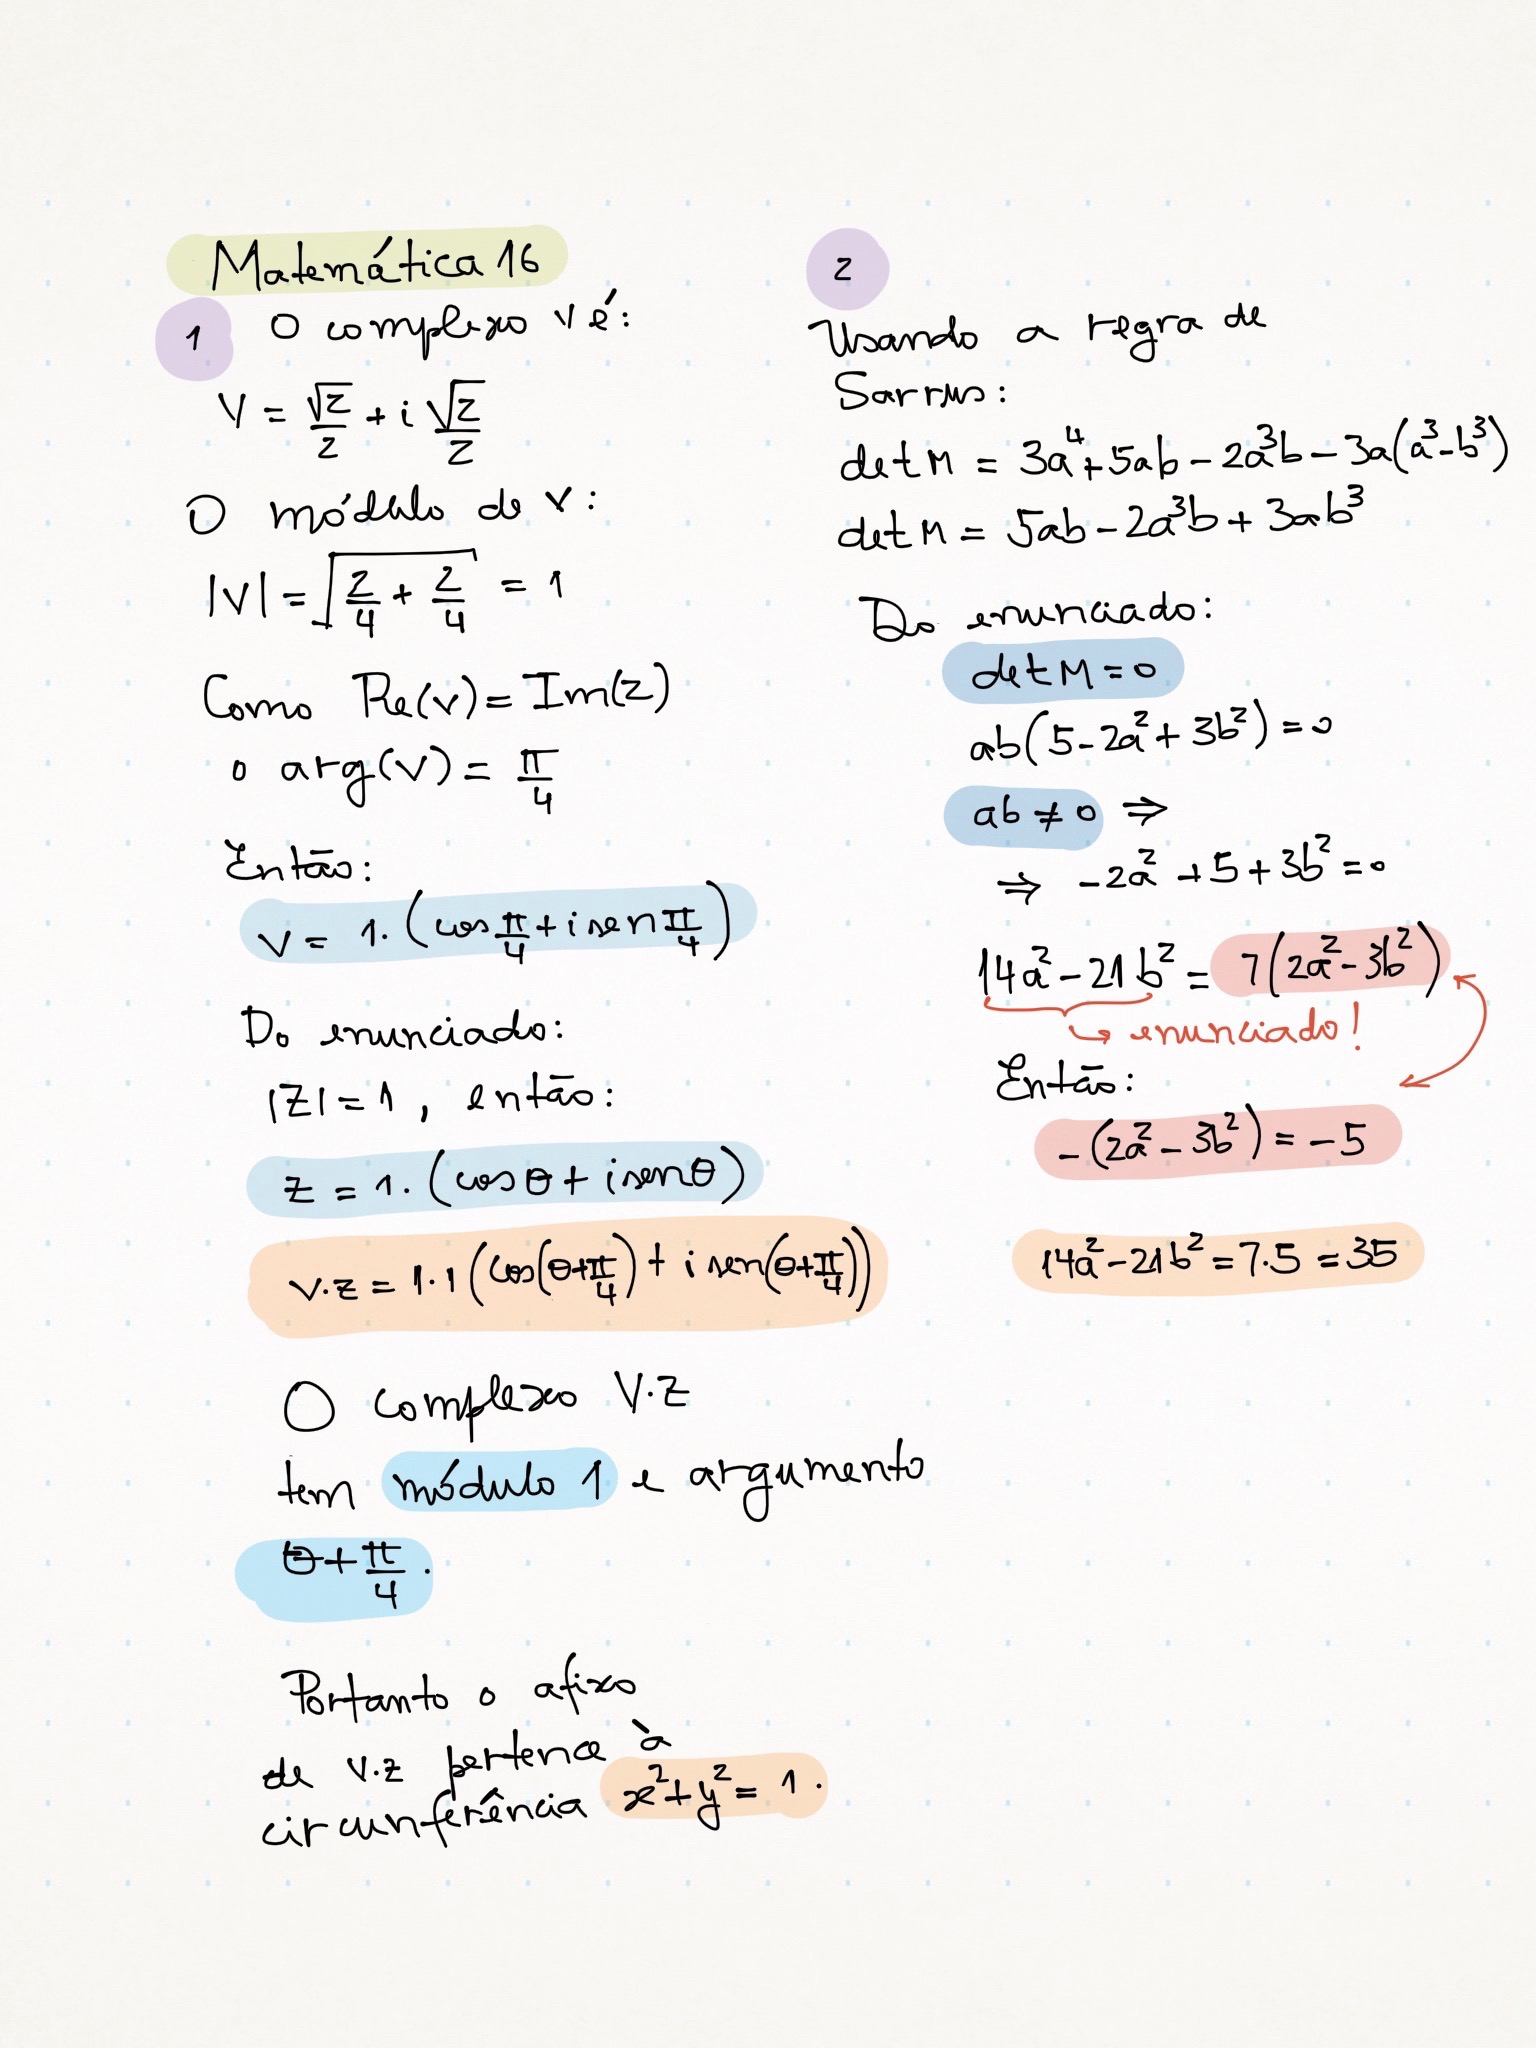 Matemática 16
1 O complexo v é:
V = √2/2 + i √2/2
O módulo de v:
|V| = √(2/4 + 2/4) = 1
Como Re(v) = Im(z)
o arg(v) = π/4
Então:
v = 1. (cos π/4 + i sen π/4)
Do enunciado:
|Z| = 1 , então:
z = 1. (cos θ + i sen θ)
v.z = 1.1 (cos(θ+π/4) + i sen(θ+π/4))
O complexo V.z
tem módulo 1 e argumento
θ + π/4 .
Portanto o afixo
de v.z pertence à
circunferência x² + y² = 1 .
2
Usando a regra de
Sarrus:
det M = 3a⁴ + 5ab - 2a³b - 3a(a³ - b³)
det M = 5ab - 2a³b + 3ab³
Do enunciado:
det M = 0
ab(5 - 2a² + 3b²) = 0
ab ≠ 0 ⇒
⇒ -2a² + 5 + 3b² = 0
14a² - 21b² = 7(2a² - 3b²)
↳ enunciado!
Então:
-(2a² - 3b²) = -5
14a² - 21b² = 7.5 = 35